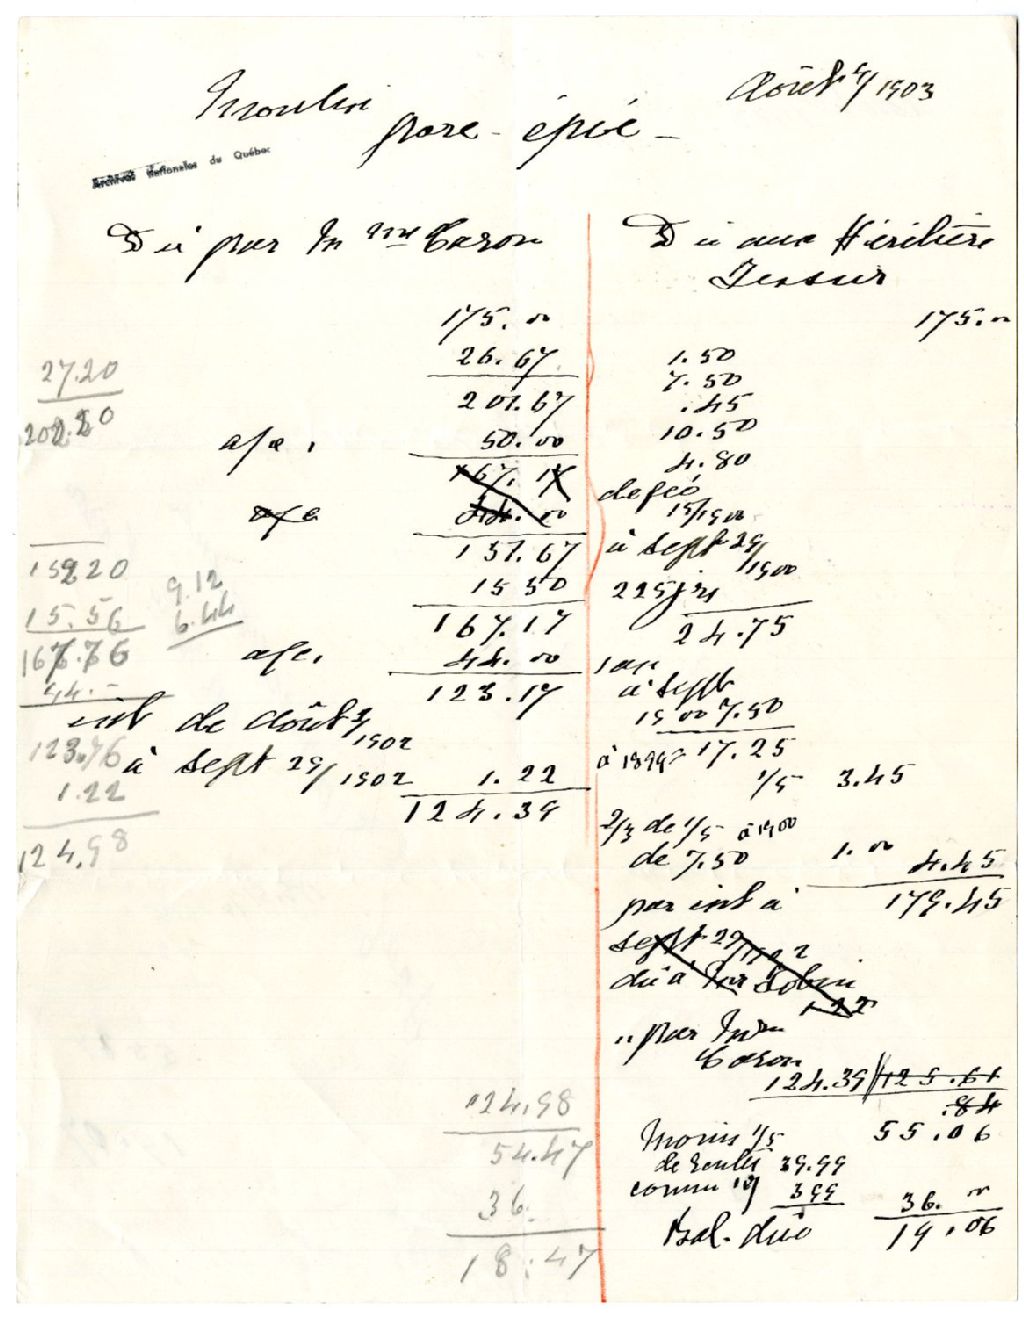 Août 4/1903
Moulin
porc-épic -
Archives Nationales du Québec
Dû par Mme Caron
175.00
26.67
201.67
afc. 50.00
167.17
afc 44.00
151.67
15 50
167.17
afc. 44.00
123.17
int de Août 3/1902
à sept 29/1902 1.22
124.39
27.20
202.20
15220
15.56
9.12
6.44
167.76
44.-
123.76
1.22
124.98
124.98
54.47
36.
18.47
Dû aux Héritière
Tessier
175.00
1.50
7.50
.45
10.50
4.80
15/1900
à sept 29/1900
225 jrs
24.75
1 an
à sept
1900 7.50
à 1899 = 17.25
1/5 3.45
2/3 de 1/5 à 1900
de 7.50 1.00 4.45
par int à 179.45
sept 29/1902
dû à Mr Tobin
1.22
" par Mdm
Caron
124.39 125.61
.84
Moins 1/5 55.06
de rentes 39.99
3 99 36.00
Bal. dûe 19.06